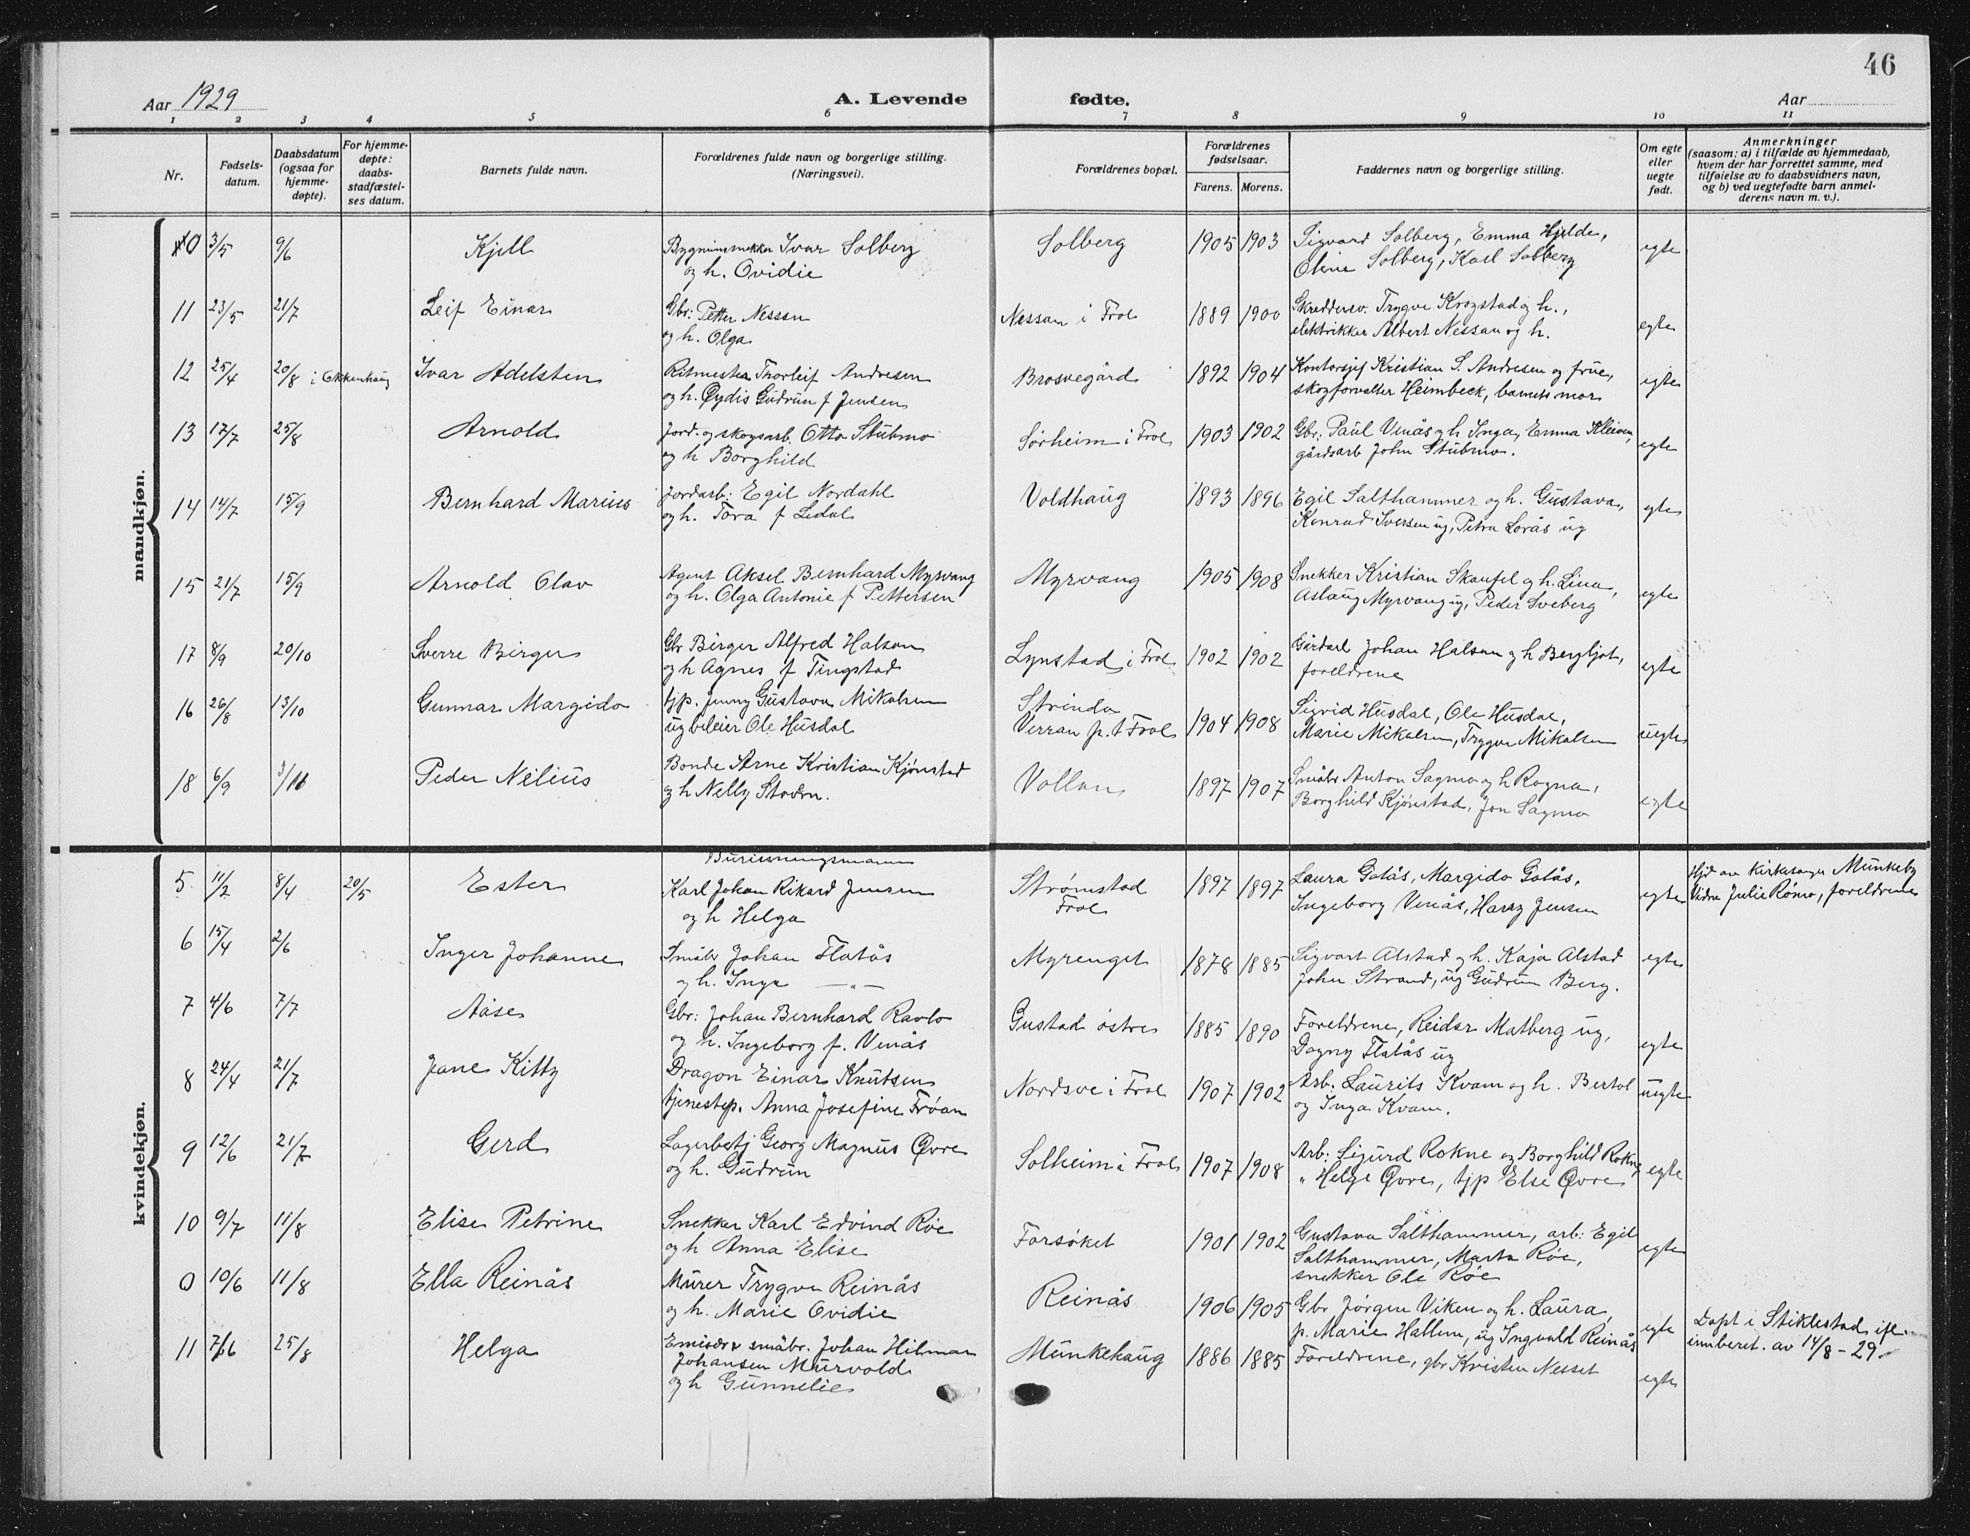 46
Aar 1929
A. Levende fødte.
Aar
1 2 3 4 5 6 7 8 9 10 11
Nr.
Fødsels-
datum.
Daabsdatum
(ogsaa for
hjemme-
døpte).
For hjemme-
døpte:
daabs-
stadfæstel-
ses datum.
Barnets fulde navn.
Forældrenes fulde navn og borgerlige stilling.
(Næringsvei).
Forældrenes bopæl.
Forældrenes
fødselsaar.
Farens. Morens.
Faddernes navn og borgerlige stilling.
Om egte
eller
uegte
født.
Anmerkninger
(saasom: a) i tilfælde av hjemmedaab,
hvem der har forrettet samme, med
tilføielse av to daabsvidners navn,
og b) ved uegtefødte barn anmel-
derens navn m. v.).
mandkjøn.
10 3/5 9/6 Kjell Bygningssnekker Ivar Solberg Solberg 1905 1903 Sigvard Solberg, Emma Hjelde, egte
og h. Ovidie Oline Solberg, Karl Solberg
11 23/5 21/7 Leif Einar Gbr: Petter Nessan Nessan i Frol 1889 1900 Skreddersv. Trygve Krogstad og h., egte
og h. Olga elektrikker Albert Nessan og h.
12 25/4 20/8 i Ekkenhaug Ivar Adelsten Ritmester Thorleif Andresen Brosvegård 1892 1904 Kontorsjef Kristian S. Andresen og frue, egte
og h. Øydis Gudrun f Jensen skogforvalter Heimbeck, barnets mor
13 17/7 25/8 Arnold Jord- og skogsarb. Otto Stubmo Sørheim i Frol 1903 1902 Gbr: Paul Venås og h Inga, Emma Kleiven, egte
og h Borghild gårdsarb John Stubmo.
14 14/7 15/9 Bernhard Marius Jordarb: Egil Nordahl Voldhaug 1893 1896 Egil Salthammer og h. Gustava, egte
og h. Tora f Ledal Konrad Iversen ug, Petra Lorås ug
15 21/7 15/9 Arnold Olav Agent Aksel Bernhard Myrvang Myrvang 1905 1908 Snekker Kristian Skaufel og h. Lina, egte
og h. Olga Antonie f Pettersen Aslaug Myrvang ug, Peder Sveberg
17 8/9 20/10 Sverre Birger Gbr Birger Alfred Halsan Lynstad i Frol 1902 1902 Gårdarb Johan Halsan og h Bergljot, egte
og h Agnes f Tingstad foreldrene
16 26/8 13/10 Gunnar Margido tjp. Jenny Gustava Mikalsen Strinda 1904 1908 Sigrid Husdal, Ole Husdal, uegte
ug bileier Ole Husdal Verran p.t Frol Marie Mikalsen, Trygve Mikalsen
18 6/9 3/11 Peder Nilius Bonde Arne Kristian Kjønstad Vollan 1897 1907 Småbr Anton Sagmo og h Ragna, egte
og h Nelly Staven. Borghild Kjønstad, Jon Sagmo
kvindekjøn.
5 11/2 8/4 20/5 Ester Karl Johan Rikard Jensen Strømstad 1897 1897 Laura Gotås, Margido Gotås, egte Hjd av kirkesanger Munkeby
og h Helga Frol Ingeborg Venås, Harry Jensen Vidne Julie Rømo, foreldrene
6 15/4 2/6 Inger Johanne Småbr Johan Flatås Myrenget 1878 1885 Sigvart Alstad og h. Kaja Alstad egte
og h. Inga — " — John Strand, ug Gudrun Berg.
7 4/6 7/7 Aase Gbr: Johan Bernhard Ravlo Gustad østre 1885 1890 Foreldrene, Reidar Matberg ug, egte
og h. Ingeborg f. Venås Dagny Flatås ug
8 24/4 21/7 Jane Kitty Dragon Einar Knutsen Nordsve i Frol 1907 1902 Arb: Laurits Kvam og h. Bertol uegte
tjenestep. Anna Josefine Frøan og Inga Kvam.
9 12/6 21/7 Gerd Lagerbetj Georg Magnus Øvre Solheim i Frol 1907 1908 Arb: Sigurd Rokne og Borghild Rokne egte
og h. Gudrun " Helge Øvre, tjp Else Øvre
10 9/7 11/8 Elise Petrine Snekker Karl Edvind Røe Forsøket 1901 1902 Gustava Salthammer, arb: Egil egte
og h Anna Elise Salthammer, Marta Røe,
snekker Ole Røe
0 10/6 11/8 Ella Reinås Murer Trygve Reinås Reinås 1906 1905 Gbr Jørgen Viken og h. Laura, egte Døpt i Stiklestad ifl.
og h. Marie Ovidie p. Marie Hallem, ug Ingvald Reinås innberet. av 14/8-29.
11 7/6 25/8 Helga Emisær & småbr. Johan Hilmar Munkehaug 1886 1885 Foreldrene, gbr Kristen Nesset egte
Johansen Murvold
og h Gunnelie